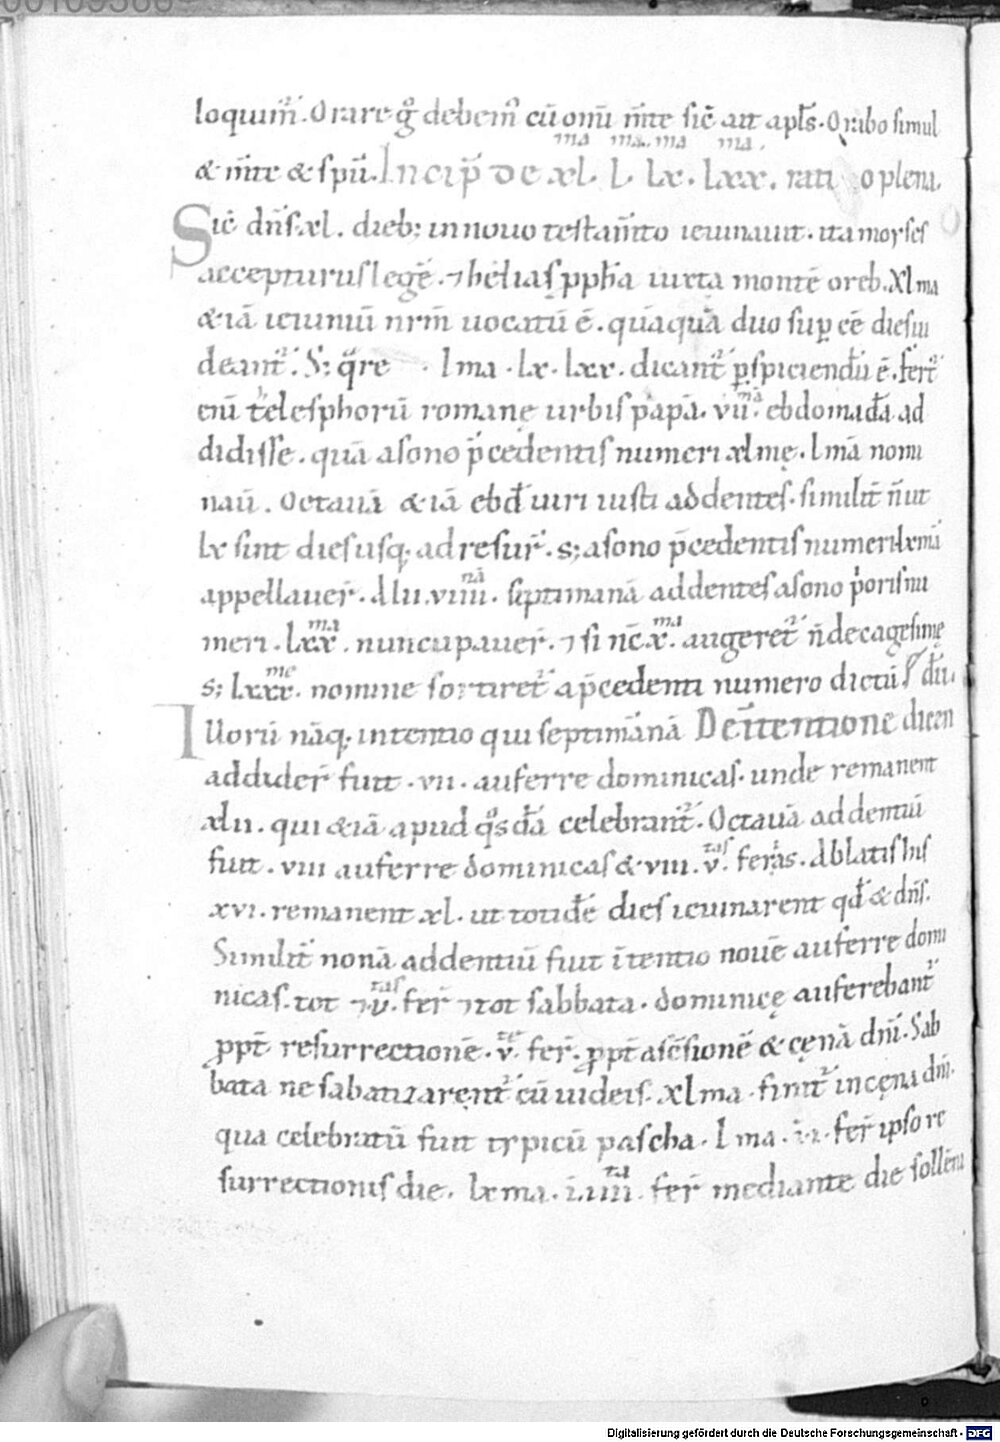 00109580
loquim̃. Orare g̊ debem᷒ cũ om̃i m̃te sic̃ ait apl̃s. Orabo simul
& m̃te & sp̃u. Incip̃ de xl. l. lx. lxx. ratio plena.
Sic̃ dñs xl. dieb; in nouo testam̃to ieiunauit. ita moyses
accepturus legẽ. ⁊ helias p̱ph̃a iuxta montẽ oreb. Xlma
&iã ieiuniũ nr̃m uocatũ ẽ. quãquã duo sup̱ cẽ dies ui
deant᷑. S; q̃re . lma . lx . lxx . dicant᷑ p̱spiciendũ ẽ. fert᷑
eni̅ telesphorũ romanę urbis papã. vii. ebdomadã ad
didisse. quã a sono p̃cedentis numeri xlmę. lmã nomi
nauit̃. Octauã &iã ebd̃ uiri iusti addentes. similit̃ ñ ut
lx sint dies usq; ad resur̃. s; a sono p̃cedentis numeri lxmã
appellauer̃. Alii .viiii. septimanã addentes a sono p̃oris nu
meri. lxx. nuncupauer̃. ⁊ si nc̃ x. augeret᷑ ñ decagesimę
s; lxxx. nomine sortiret᷑ a p̃cedenti numero dictũ
Illorũ nãq; intentio qui septimãnã De ĩtentione dicen dũ.
addider̃ fuit . vii . auferre dominicas. unde remanent
xlii. qui &iã apud q̊sdã celebrant᷑. Octauã addentiũ
fuit. viii auferre dominicas & viii. v. ferias. Ablatis his
xvi. remanent xl. ut totidẽ dies ieiunarent qd̃ & dñs.
Similit̃ nonã addentiũ fuit ĩtentio nouẽ auferre domi
nicas. tot ⁊ v. fer̃ ⁊ tot sabbata. dominicę auferebant᷑
p̱pt̃ resurrectionẽ. v. fer̃. p̱pt̃ asc̃sionẽ & cęnã dñi. Sab
bata ne sabatizarent᷑ cũ iudeis. Xlma. finit᷑ in cęna dñi.
qua celebratũ fuit typicũ pascha. lma. i. fer̃ ipso re
surrectionis die. lxma. i. iiii. fer̃ mediante die sollẽni
Digitalisierung gefördert durch die Deutsche Forschungsgemeinschaft - DFG